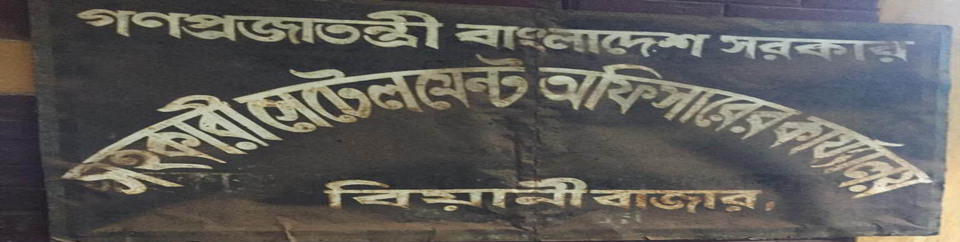 গণপ্রজাতন্ত্রী বাংলাদেশ সরকার
সহকারী সেটেলমেন্ট অফিসারের কার্য্যালয়
বিয়ানীবাজার।